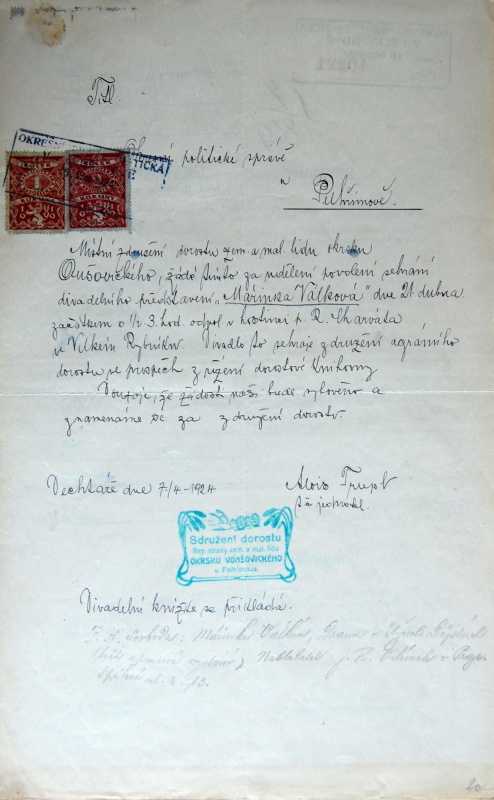 Ttl.
OKRESNÍ
POLITICKÁ
KOLEK
KOLEK
1
KORUNY
politické správě
v
Pelhřimově.
Místní združení dorostu zem. a mal. lidu okrsku
Oušovického, žádá tímto za udělení povolení sehrání
divadelního představení „Marjnka Válková" dne 21 dubna
začátkem o 1/2 3. hod. odpol v hostinci p. R. Charváta
ve Velkém Rybníku. Divadlo to sehraje združení agrárního
dorostu ve prospěch zřízení dorostové knihovny
Doufaje, že žádosti naší bude vyhověno a
znamenáme se za združení dorostu
Vechtaře dne 7./4 - 1924
Alois Trupl
t. č. jednatel.
Sdružení dorostu
Rep. strany zem. a mal. lidu
OKRSKU VONŠOVICKÉHO
u Pelhřimova.
Divadelní knížka se přikládá.
F. X. Svoboda: Márinka Válková, Drama v
v Praze
20